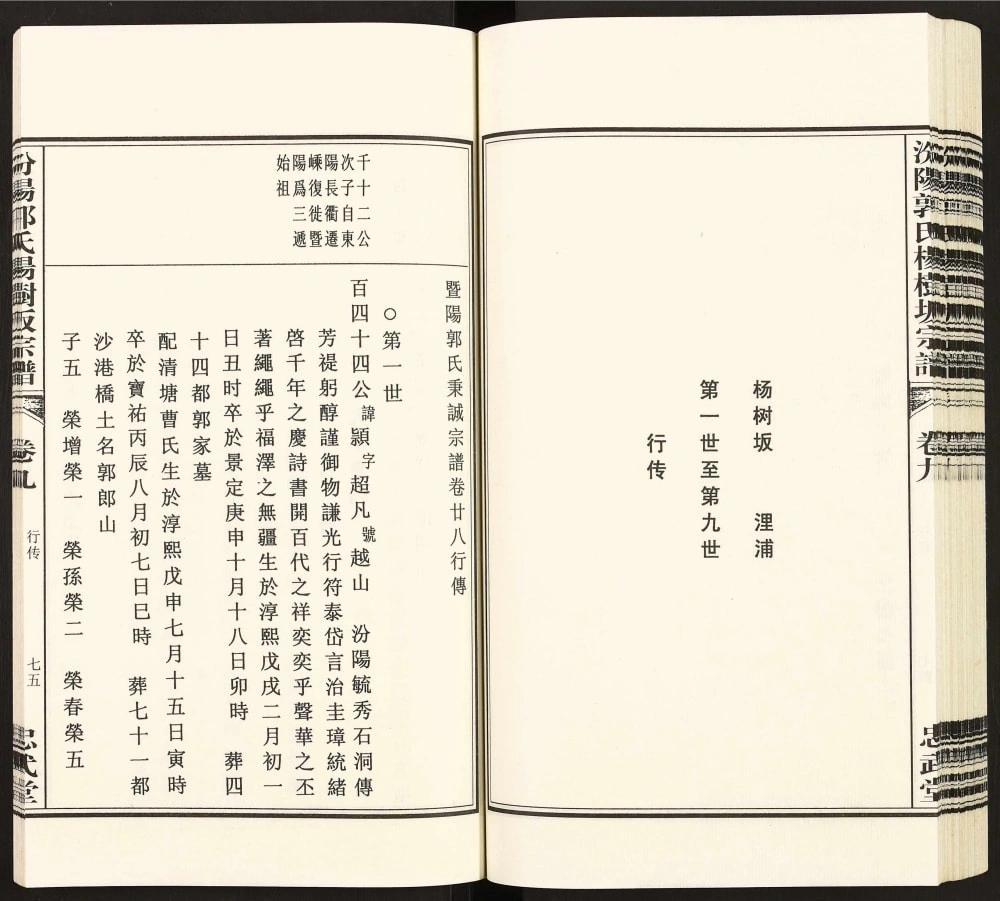 汾陽郭氏楊樹坂宗譜 卷九 忠武堂
杨树坂 浬浦
第一世至第九世
行传
千十二公
次子自東
陽長衢遷
嵊復徙暨
陽爲三遞
始祖
暨陽郭氏秉誠宗譜卷廿八行傳
○第一世
百四十四公諱顥字超凡號越山 汾陽毓秀石洞傳
芳禔躬醇謹御物謙光行符泰岱言治圭璋統緒
啓千年之慶詩書開百代之祥奕奕乎聲華之丕
著繩繩乎福澤之無疆生於淳熙戊戌二月初一
日丑时卒於景定庚申十月十八日卯時 葬四
十四都郭家墓
配清塘曹氏生於淳熙戊申七月十五日寅時
卒於寶祐丙辰八月初七日巳時 葬七十一都
沙港橋土名郭郎山
子五 榮增榮一 榮孫榮二 榮春榮五
汾陽郭氏楊樹坂宗譜 卷九 行传 七五 忠武堂